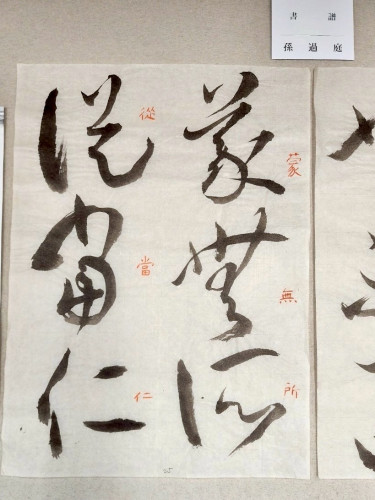 書譜
孫過庭
蒙無所
蒙無所
從當仁
從當仁